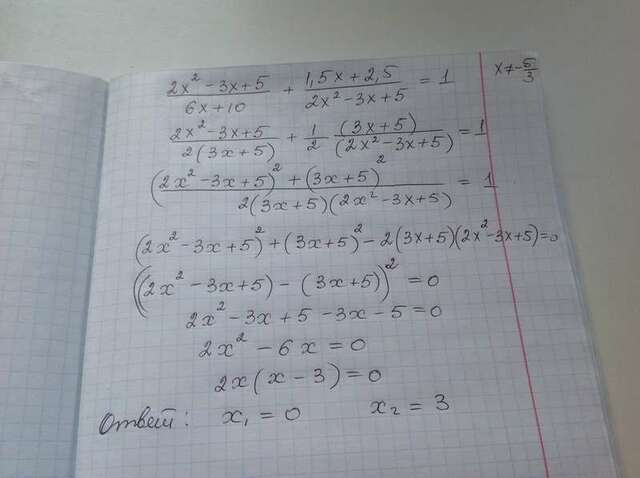 (2x² - 3x + 5)/(6x + 10) + (1,5x + 2,5)/(2x² - 3x + 5) = 1 x ≠ -5/3
(2x² - 3x + 5)/(2(3x + 5)) + 1/2 (3x + 5)/(2x² - 3x + 5) = 1
((2x² - 3x + 5)² + (3x + 5)²)/(2(3x + 5)(2x² - 3x + 5)) = 1
(2x² - 3x + 5)² + (3x + 5)² - 2(3x + 5)(2x² - 3x + 5) = 0
((2x² - 3x + 5) - (3x + 5))² = 0
2x² - 3x + 5 - 3x - 5 = 0
2x² - 6x = 0
2x(x - 3) = 0
Ответ: x₁ = 0 x₂ = 3